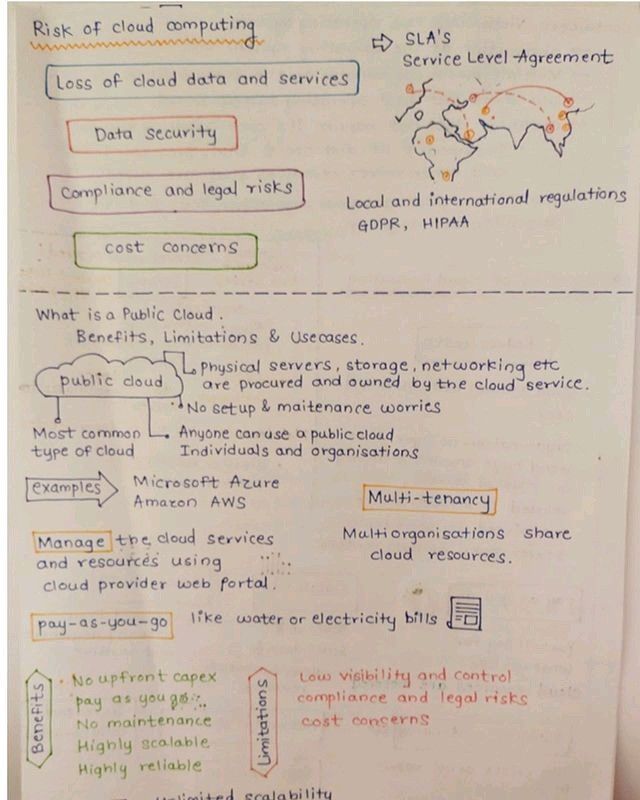 Risk of cloud computing
Loss of cloud data and services
Data security
Compliance and legal risks
cost concerns
⇨ SLA's
Service Level Agreement
Local and international regulations
GDPR, HIPAA
What is a Public Cloud.
Benefits, Limitations & Usecases.
public cloud
Physical servers, storage, networking etc
are procured and owned by the cloud service.
No setup & maitenance worries
Most common
type of cloud
Anyone can use a public cloud
Individuals and organisations
examples
Microsoft Azure
Amazon AWS
Multi-tenancy
Multiorganisations share
cloud resources.
Manage the cloud services
and resources using
cloud provider web portal.
pay-as-you-go like water or electricity bills
Benefits
No upfront capex
pay as you go
No maintenance
Highly scalable
Highly reliable
Limitations
Low visibility and control
compliance and legal risks
cost concerns
Unlimited scalability